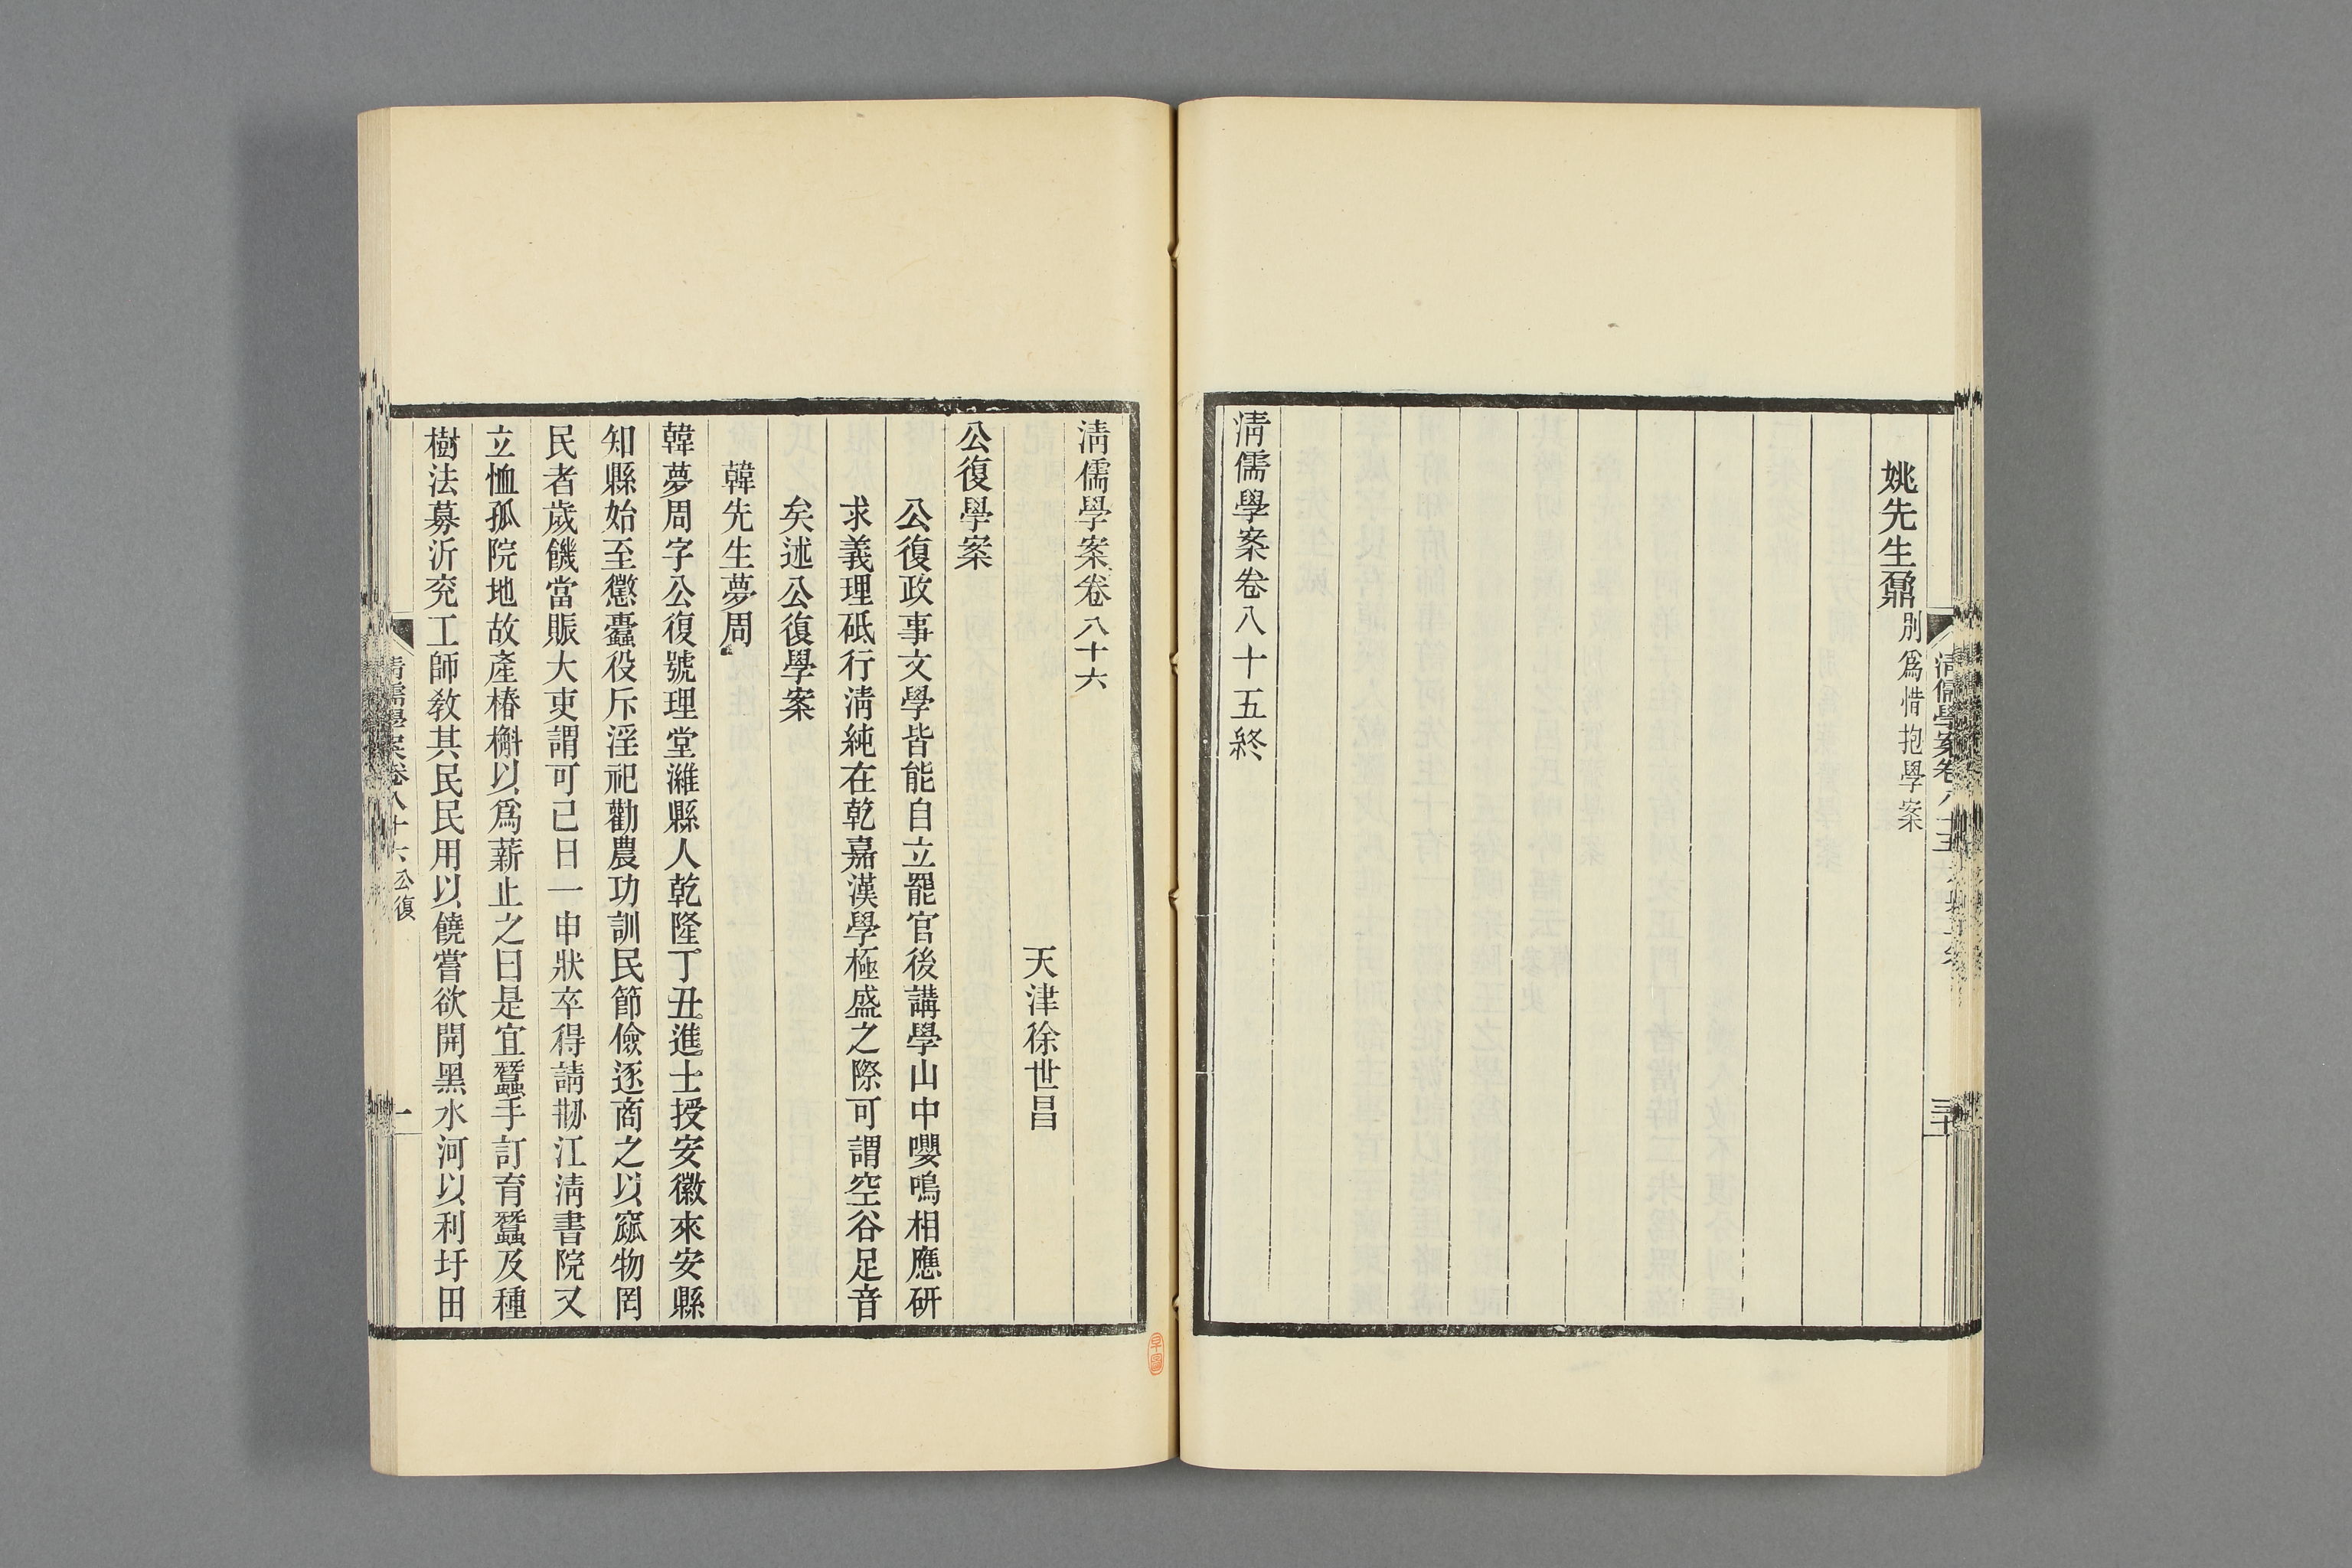 姚先生鼐別爲惜抱學案
清儒學案卷八十五終
清儒學案卷八十六
天津徐世昌
公復學案
公復政事文學皆能自立罷官後講學山中嚶鳴相應研
求義理砥行淸純在乾嘉漢學極盛之際可謂空谷足音
矣述公復學案
韓先生夢周
韓夢周字公復號理堂濰縣人乾隆丁丑進士授安徽來安縣
知縣始至懲蠹役斥淫祀勸農功訓民節儉逐商之以窳物罔
民者歲饑當賑大吏謂可已日一申狀卒得請剏江淸書院又
立恤孤院地故產椿槲以爲薪止之曰是宜蠶手訂育蠶及種
樹法募沂兗工師敎其民民用以饒嘗欲開黑水河以利圩田
清儒學案卷八十六 公復
一